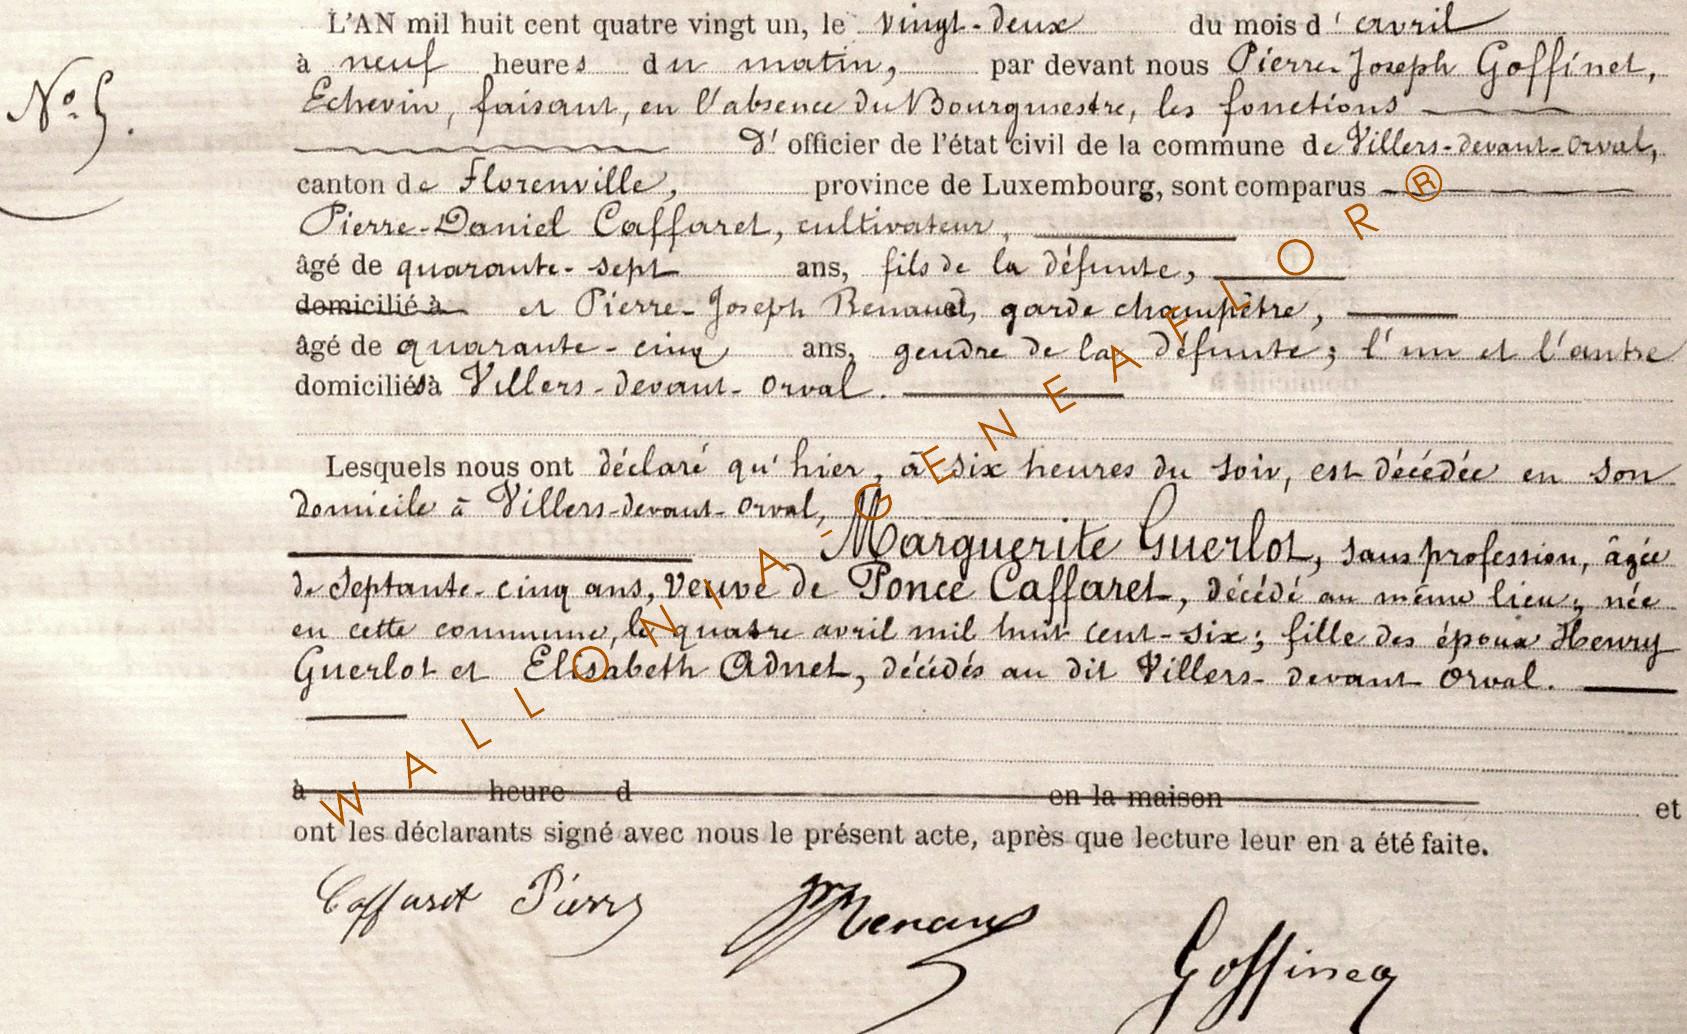 L'AN mil huit cent quatre vingt un, le vingt-deux du mois d'avril
N° 5.
à neuf heures du matin, par devant nous Pierre-Joseph Goffinet,
Echevin, faisant, en l'absence du Bourgmestre, les fonctions
d'officier de l'état civil de la commune de Villers-devant-Orval,
canton de Florenville, province de Luxembourg, sont comparus
Pierre-Daniel Caffaret, cultivateur,
âgé de quarante-sept ans, fils de la défunte,
domicilié à et Pierre-Joseph Renaud, garde champêtre,
âgé de quarante-cinq ans, gendre de la défunte; l'un et l'autre
domiciliés à Villers-devant-Orval.
Lesquels nous ont déclaré qu'hier, à six heures du soir, est décédée en son
domicile à Villers-devant-Orval,
Marguerite Guerlot, sans profession, âgée
de septante-cinq ans, veuve de Ponce Caffaret, décédé au même lieu; née
en cette commune, le quatre avril mil huit cent-six; fille des époux Henry
Guerlot et Elisabeth Adnet, décédés au dit Villers-devant Orval.
à heure d en la maison et
ont les déclarants signé avec nous le présent acte, après que lecture leur en a été faite.
Caffaret Pierre Renaud Goffinet
WALLONIA-GENEAFLOR®